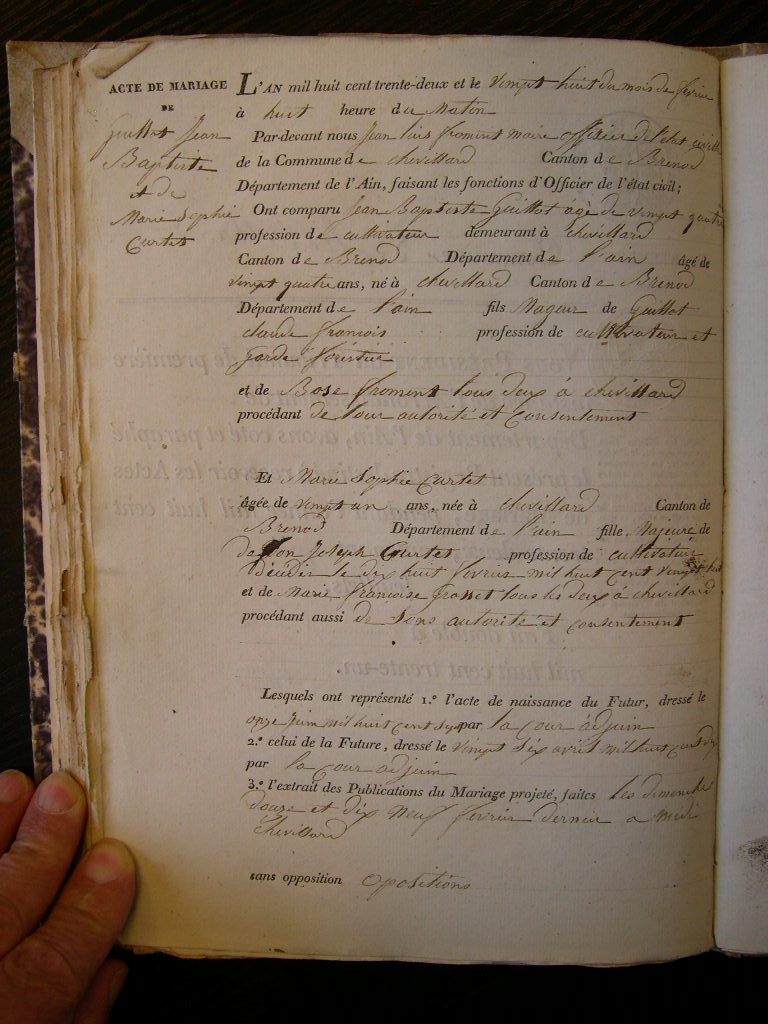 ACTE DE MARIAGE
DE
Guillot Jean
Baptiste
et de
Marie Sophie
Curtet
L'AN mil huit cent trente-deux et le vingt huit du mois de fevrier
à huit heure du Matin
Par-devant nous Jean luis froment maire officier de l'etat civille
de la Commune de chevillard Canton de Brenod
Département de l'Ain, faisant les fonctions d'Officier de l'état civil;
Ont comparu Jean Baptiste Guillot âgé de vingt quatre
profession de cultivateur demeurant à chevillard
Canton de Brenod Département de l'ain âgé de
vingt quatre ans, né à chevillard Canton de Brenod
Département de l'ain fils Majeur de Guillot
claude francois profession de cultivateur et
garde forestier
et de Rose froment tous deux à chevillard
procédant de leur autorité et Consentement
Et Marie Sophie Curtet
âgée de vingt un ans, née à chevillard Canton de
Brenod Département de l'ain fille Majeure de
Joseph Curtet profession de cultivateur
décédé le dix huit fevrier mil huit cent vingt huit
et de Marie francoise grosset tous les deux à chevillard
procédant aussi de sons autorité et consentement
Lesquels ont représenté 1.º l'acte de naissance du Futur, dressé le
onze juin mil huit cent par la Cour adjuin
2.º celui de la Future, dressé le vingt six avril mil huit cent dix
par la Cour adjuin
3.º l'extrait des Publications du Mariage projeté, faites les dimenche
douze et dix neuf fevrier dernier a midi
chevillard
sans opposition opositions